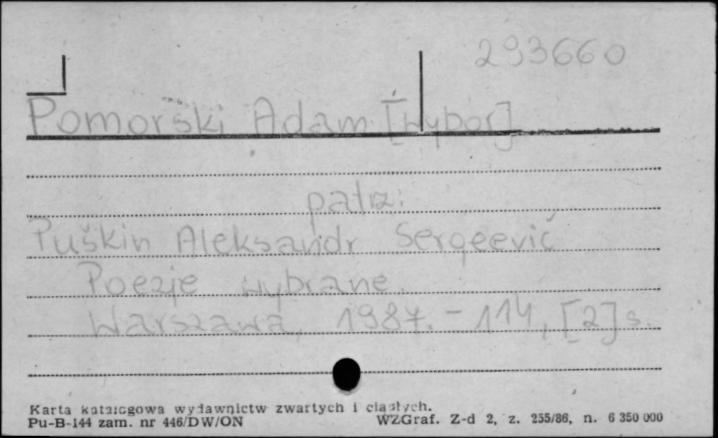 293660
Pomorski Adam [wybór]
patrz:
Puškin Aleksandr Sergeevič
Poezje wybrane.
Warszawa, 1987. - 114, [2] s.
Karta katalogowa wydawnictw zwartych i ciągłych.
Pu-B-144 zam. nr 446/DW/ON WZGraf. Z-d 2, z. 255/86, n. 6 350 000